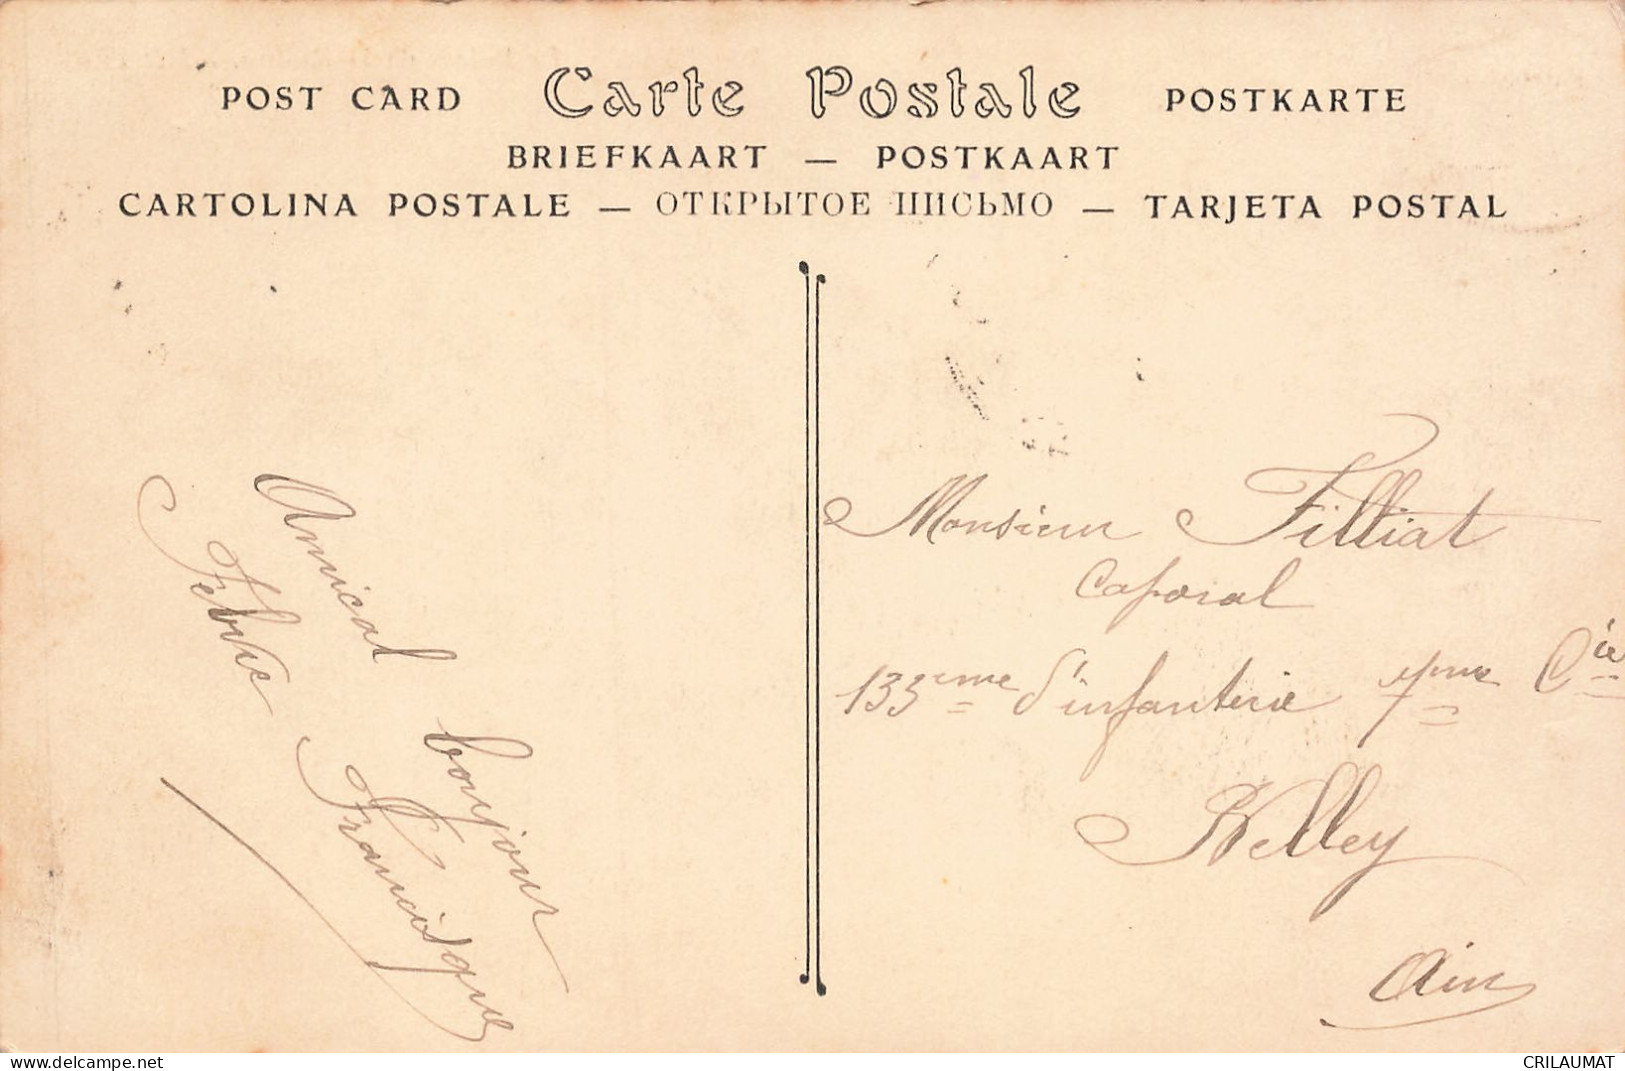 POST CARD Carte Postale POSTKARTE
BRIEFKAART — POSTKAART
CARTOLINA POSTALE — ОТКРЫТОЕ ПИСЬМО — TARJETA POSTAL
Amical bonjour
Febvre Francisque
Monsieur Filliat
Caporal
133eme d'infanterie 7me Cie
Belley
Ain
www.delcampe.net
CRILAUMAT